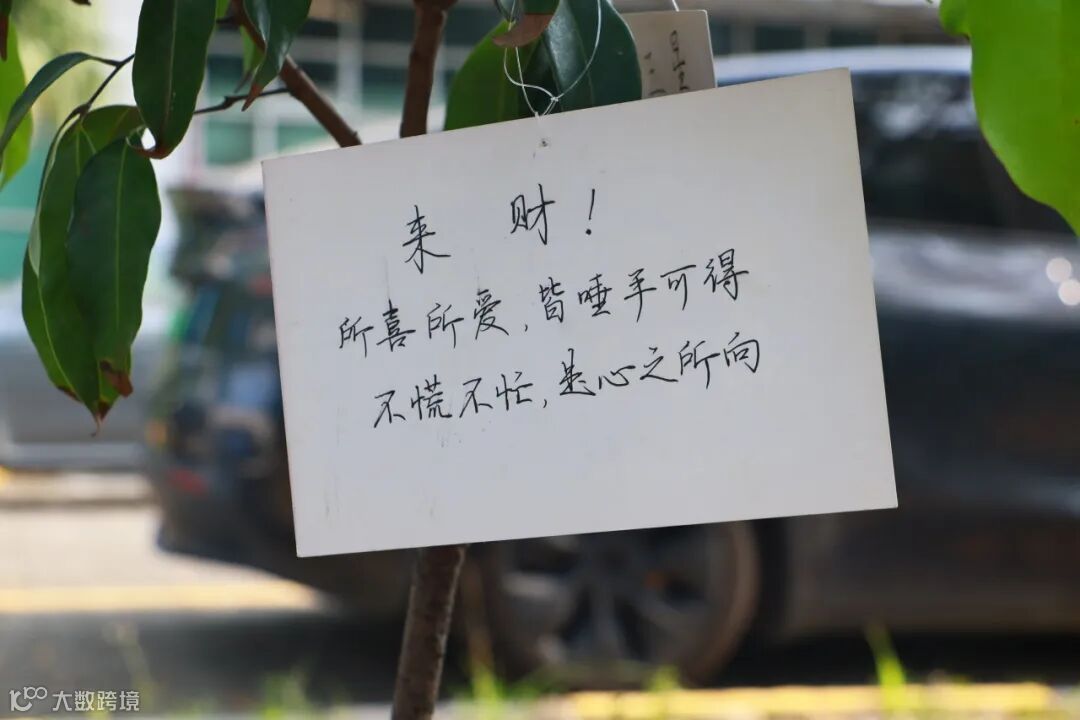 来 财！
所喜所爱，皆唾手可得
不慌不忙，是心之所向
大数跨境